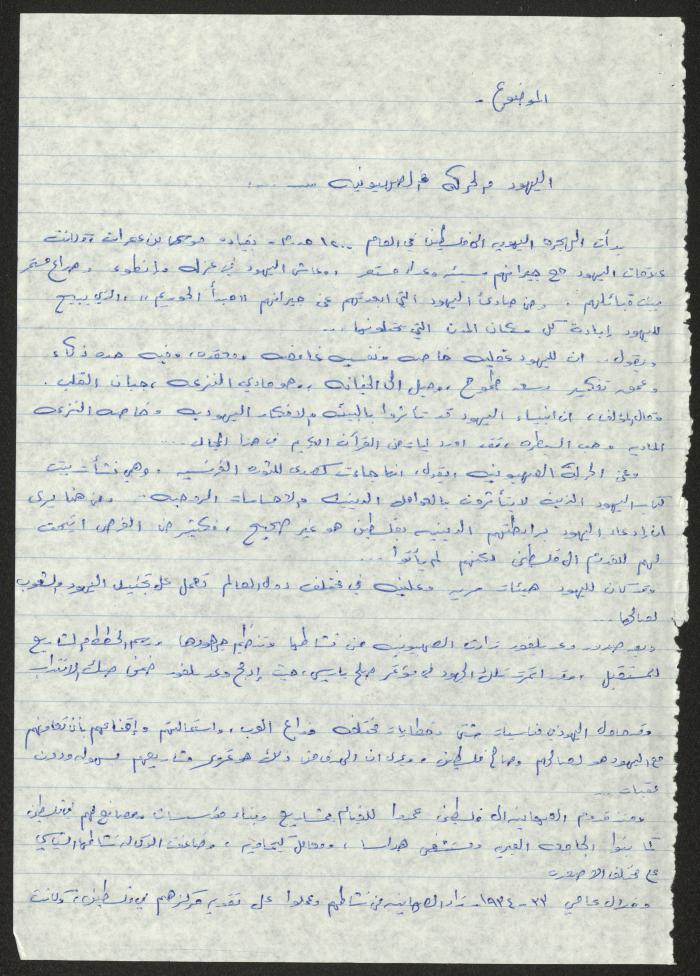 الموضوع -
اليهود والحركة الصهيونية ......
بدأت الهجرة اليهودية الى فلسطين في العام ١٢٠٠ بقيادة موسى بن عمران ، وكانت
علاقات اليهود مع جيرانهم سيئة وعداء مستمر ، وعاش اليهود في عزلة وانطواء وصراع مستمر
بين قبائلهم . ومن مبادئ اليهود التي ابعدتهم عن جيرانهم "مبدأ الحوريم" ، الذي يبيح
لليهود إبادة كل سكان المدن التي يحتلونها ...
ويقول .. ان لليهود عقلية خاصة ونفسية غامضة ومعقدة ، وفيه حدة ذكاء
وعمق تفكير وسعة طموح ، وميل الى الخيانة ، وهو مادي النزعة ، جبان القلب .
وقال المؤلف ، ان انبياء اليهود قد تأثروا بالبيئة والافكار اليهودية وخاصة النزعة
المادية وحب السيطرة ، فقد اورد ايات من القرآن الكريم في هذا المجال ...
وعن الحركة الصهيونية يقول ، انها جاءت كصدى للثورة الفرنسية . وهي نشأت بين
اليهود الذين لا يتأثرون بالعوامل الدينية والاحساسات الروحية .. ومن هنا يرى
ان إدعاء اليهود برابطتهم الدينية بفلسطين هو غير صحيح ، فكثير من الفرص اتيحت
لهم للقدوم الى فلسطين لكنهم لم يأتوا ...
وقد كان لليهود هيئات سرية وعلنية في مختلف دول العالم تعمل على تجنيد اليهود والشعوب
لصالحها ..
وبعد صدور وعد بلفور زادت الصهيونية من نشاطها وتنظيم جهودها ورسم الخطط والمشاريع
للمستقبل ، وقد اثمرت تلك الجهود في مؤتمر صلح باريس ، حيث إدمج وعد بلفور ضمن صك الانتداب
وقد حاول اليهود في مناسبات شتى وخطابات مختلفة خداع العرب ، واستمالتهم وإقناعهم بأن تعاونهم
مع اليهود هو لصالحهم وصالح فلسطين ، ويرى ان الهدف من ذلك هو تمرير مشاريعهم بسهولة ودون
عقبات ...
وعند قدوم الصهاينة الى فلسطين عمدوا للقيام بمشاريع وبناء مؤسسات ومصانع لهم في فلسطين
كما بنوا الجامعة العبرية ومستشفى هداسا ، ومعامل كيماوية ، وضاعفت الوكالة نشاطها السياسي
على مختلف الاصعدة
وخلال عامي ٣٣ - ٩٣٤ زاد الصهاينة من نشاطهم وعملوا على تقوية مركزهم في فلسطين ، وكانت